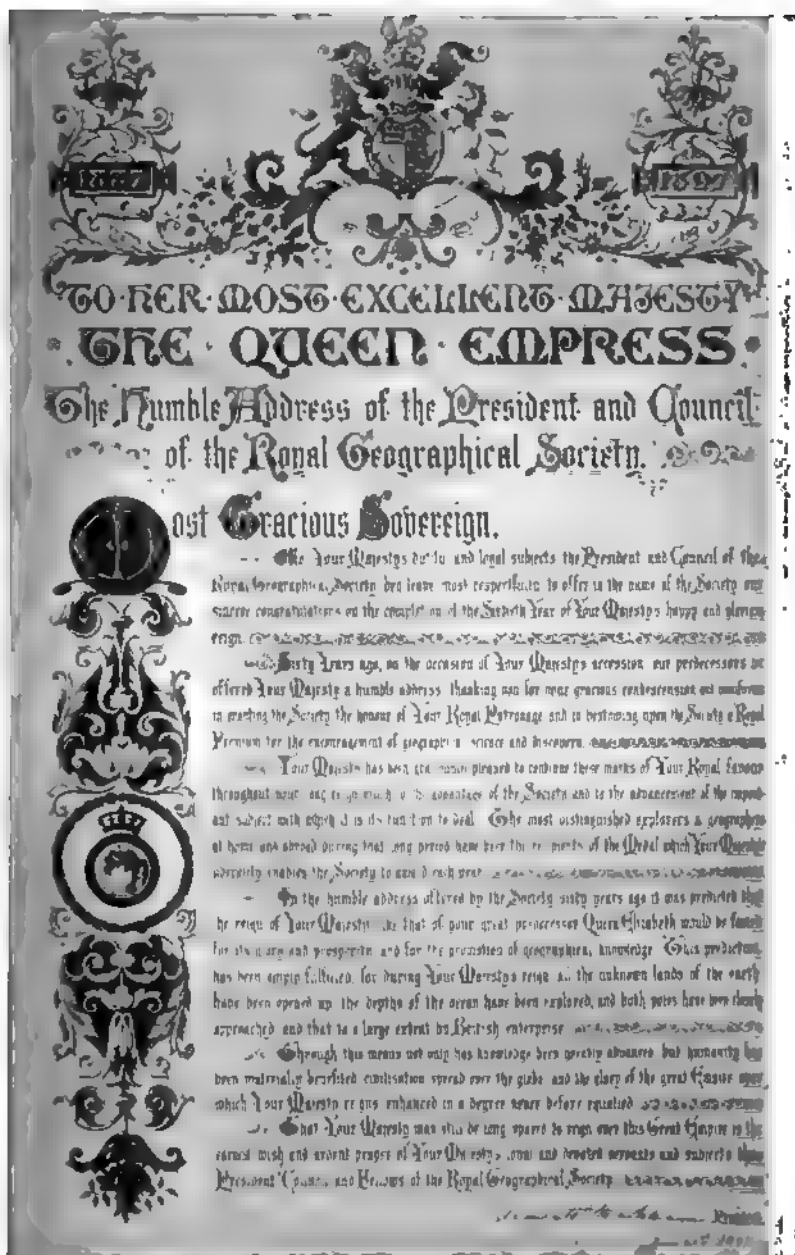 1837
1897
TO·HER·MOST·EXCELLENT·MAJESTY
THE·QUEEN·EMPRESS
The Humble Address of the President and Council
of the Royal Geographical Society.
Most Gracious Sovereign.
We Your Majesty's dutiful and loyal subjects the President and Council of the
Royal Geographical Society beg leave most respectfully to offer in the name of the Society our
sincere congratulations on the completion of the Sixtieth Year of Your Majesty's happy and glorious
reign.
Sixty Years ago, on the occasion of Your Majesty's accession, our predecessors
offered Your Majesty a humble address, thanking you for your gracious condescension and
in granting the Society the honour of Your Royal Patronage and in bestowing upon the Society a Royal
Premium for the encouragement of geographical science and discovery.
Your Majesty has been graciously pleased to continue these marks of Your Royal favour
throughout your long reign much to the advantage of the Society and to the advancement of the import-
ant subject with which it is its function to deal. The most distinguished explorers & geographers
at home and abroad during that long period have been the recipients of the Medal which Your Majesty's
enables the Society to award each year
In the humble address offered by the Society sixty years ago it was predicted that
the reign of Your Majesty like that of your great predecessor Queen Elizabeth would be famed
for its glory and prosperity and for the promotion of geographical knowledge. This prediction
has been amply fulfilled, for during Your Majesty's reign all the unknown lands of the earth
have been opened up, the depths of the ocean have been explored, and both poles have been closely
approached, and that to a large extent by British enterprise
Through this means not only has knowledge been greatly advanced, but humanity has
been materially benefited civilisation spread over the globe and the glory of the great Empire over
which Your Majesty reigns enhanced in a degree never before equalled
That Your Majesty may still be long spared to reign over this Great Empire is the
earnest wish and ardent prayer of Your Majesty's loyal and devoted servants and subjects the
President Council and Fellows of the Royal Geographical Society
President